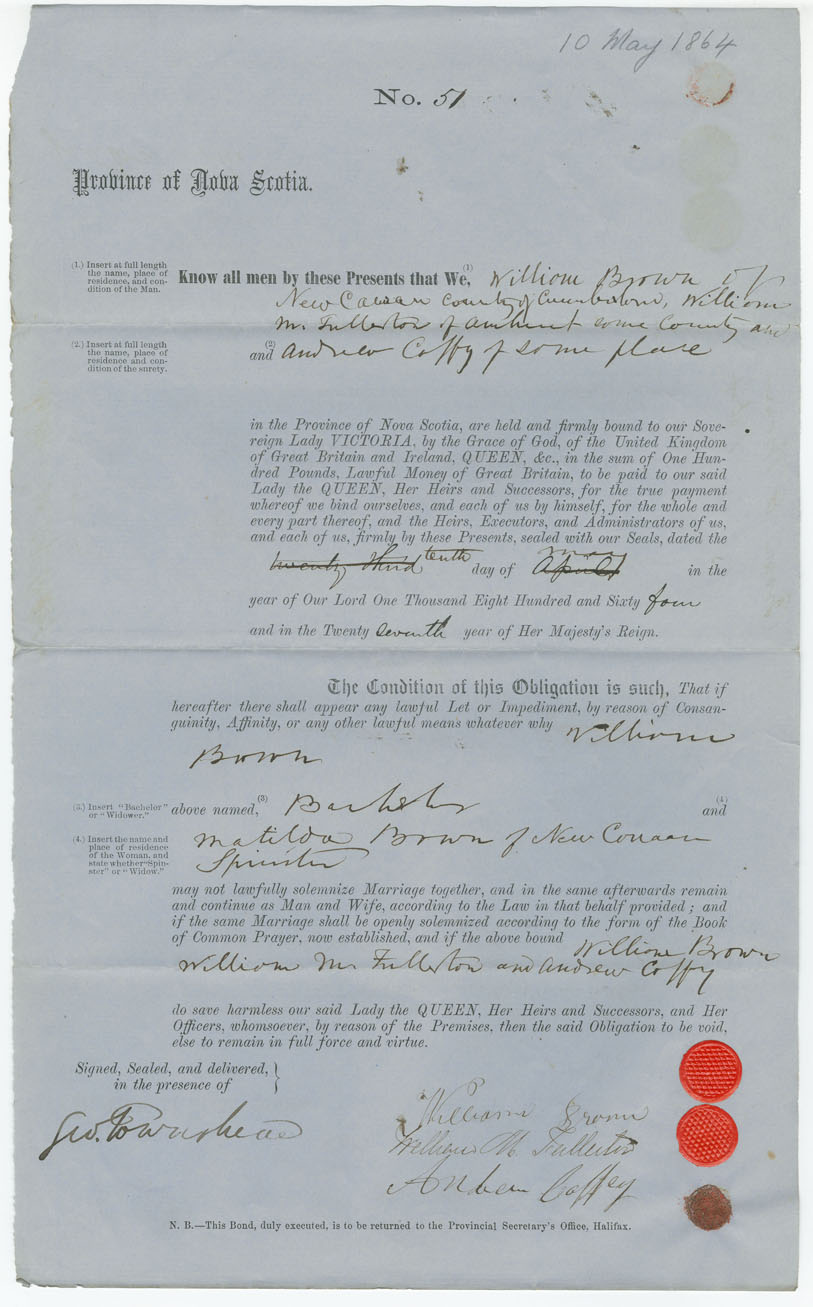 10 May 1864
No. 51
Province of Nova Scotia.
(1.) Insert at full length
the name, place of
residence, and con-
dition of the Man.
Know all men by these Presents that We,(1) William Brown of
New Canaan County of Cumberland, William
M. Fullerton of Amherst same County and
(2.) Insert at full length
the name, place of
residence and con-
dition of the surety.
and(2) Andrew Coffy of same place
in the Province of Nova Scotia, are held and firmly bound to our Sove-
reign Lady VICTORIA, by the Grace of God, of the United Kingdom
of Great Britain and Ireland, QUEEN, &c., in the sum of One Hun-
dred Pounds, Lawful Money of Great Britain, to be paid to our said
Lady the QUEEN, Her Heirs and Successors, for the true payment
whereof we bind ourselves, and each of us by himself, for the whole and
every part thereof, and the Heirs, Executors, and Administrators of us,
and each of us, firmly by these Presents, sealed with our Seals, dated the
twenty third tenth day of April May in the
year of Our Lord One Thousand Eight Hundred and Sixty four
and in the Twenty seventh year of Her Majesty's Reign.
The Condition of this Obligation is such, That if
hereafter there shall appear any lawful Let or Impediment, by reason of Consan-
guinity, Affinity, or any other lawful means whatever why William
Brown
(3.) Insert "Bachelor"
or "Widower."
above named,(3) Bachelor and(4)
(4.) Insert the name and
place of residence
of the Woman. and
state whether "Spin-
ster" or "Widow."
Matilda Brown of New Canaan
Spinster
may not lawfully solemnize Marriage together, and in the same afterwards remain
and continue as Man and Wife, according to the Law in that behalf provided; and
if the same Marriage shall be openly solemnized according to the form of the Book
of Common Prayer, now established, and if the above bound William Brown
William M. Fullerton and Andrew Coffy
do save harmless our said Lady the QUEEN, Her Heirs and Successors, and Her
Officers, whomsoever, by reason of the Premises, then the said Obligation to be void,
else to remain in full force and virtue.
Signed, Sealed, and delivered,
in the presence of
Geo. Townshend
William Brown
William M. Fullerton
Andrew Coffey
N. B.—This Bond, duly executed, is to be returned to the Provincial Secretary's Office, Halifax.